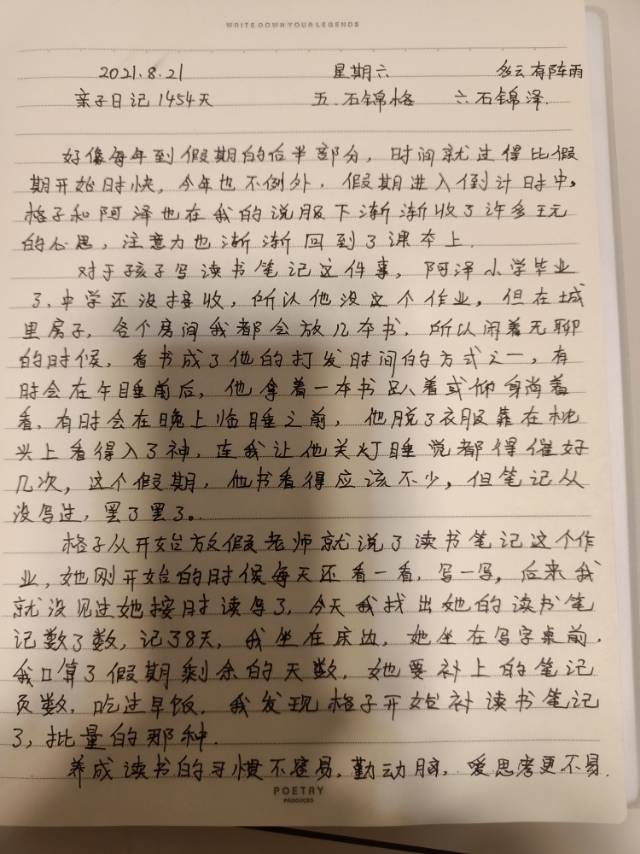 WRITE DOWN YOUR LEGENDS
2021.8.21 星期六 多云有阵雨
亲子日记1454天 五.石锦格 六石锦泽.
好像每年到假期的后半部分，时间就过得比假
期开始时快，今年也不例外，假期进入倒计时中，
格子和阿泽也在我的说服下渐渐收了许多玩
的心思，注意力也渐渐回到了课本上.
对于孩子写读书笔记这件事，阿泽小学毕业
了，中学还没接收，所以他没这个作业，但在城
里房子，各个房间我都会放几本书，所以闲着无聊
的时候，看书成了他的打发时间的方式之一，有
时会在午睡前后，他拿着一本书趴着或仰身尚着
看，有时会在晚上临睡之前，他脱了衣服靠在枕
头上看得入了神，连我让他关灯睡觉都得催好
几次，这个假期，他书看得应该不少，但笔记从
没写过，罢了罢了。
格子从开始放假老师就说了读书笔记这个作
业，她刚开始的时候每天还看一看，写一写，后来我
就没见过她按时读写了，今天我找出她的读书笔
记数了数，记了8天，我坐在床边，她坐在写字桌前.
我口算了假期剩余的天数，她要补上的笔记
页数，吃过早饭，我发现格子开始补读书笔记
了，批量的那种.
养成读书的习惯不容易，勤动脑，爱思考更不易.
POETRY
PRODUCED